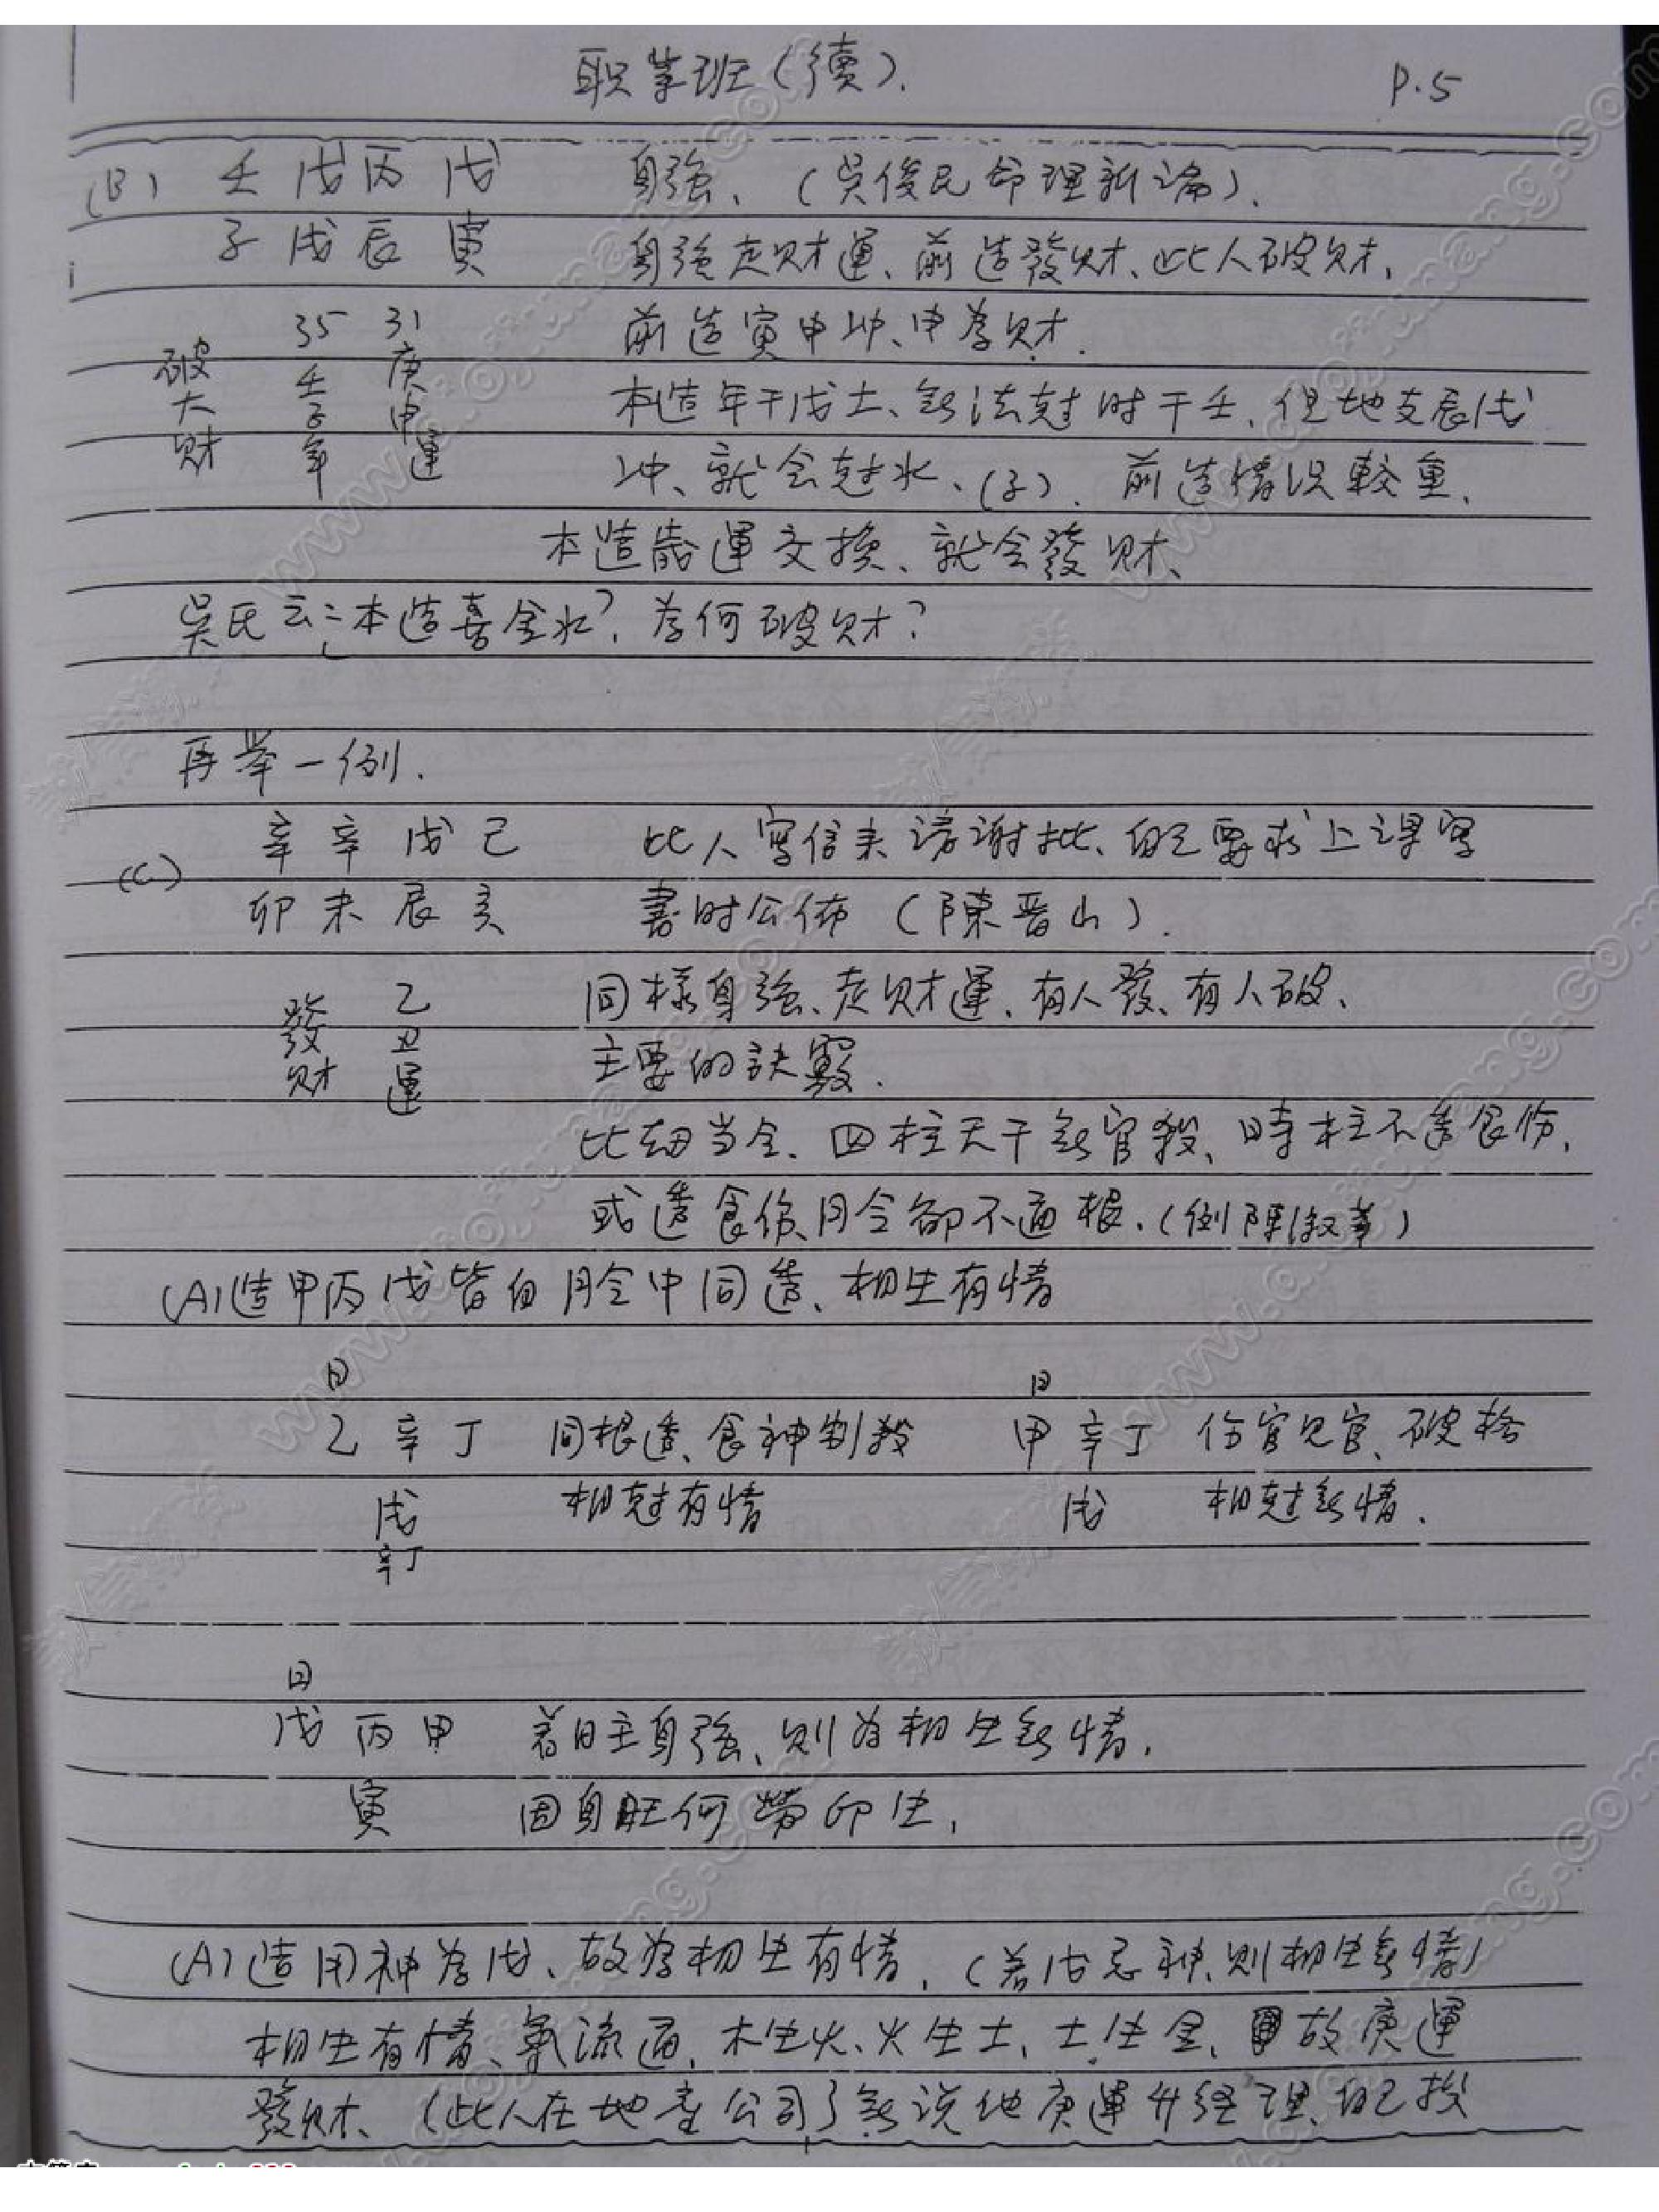 职業班(續). P.5
(B) 壬 戊 丙 戊 身強、(吳俊民命理新論).
子 戌 辰 寅 身強走財運、前造發財、此人破财.
35 31 前造寅申冲、申为财.
破大财 壬子年 庚申運
本造年干戊土、無法尅时干壬、但地支辰戌
冲、就会尅水、(子). 前造情况較重.
本造歲運交換、就会發财、
吳氏云:本造喜金水?為何破财?
再举一例.
(C) 辛 辛 戊 己 此人寫信来请谢批、自己要求上课寫
卯 未 辰 亥 書时公佈(陳晋山).
發财 乙丑運
同樣身強、走财運、有人發、有人破、
主要的訣竅.
比刼当令、四柱天干無官殺、時柱不透食伤,
或透食伤、月令卻不通根.(例陳)
(A)造甲丙戊皆自月令中同透、相生有情
日 日
乙 辛 丁 同根透、食神制殺 甲 辛 丁 伤官见官、破格
戌 相尅有情 戌 相尅無情.
辛丁
日
戊 丙 甲 若日主身強、则为相生無情.
寅 因身旺何勞印生.
(A)造用神为戊、故为相生有情.(若戊忌神、则相生無情)
相生有情、氣流通、木生火、火生土、土生金、故庚運
發财、(此人在地產公司)無说他庚運升经理、自己投